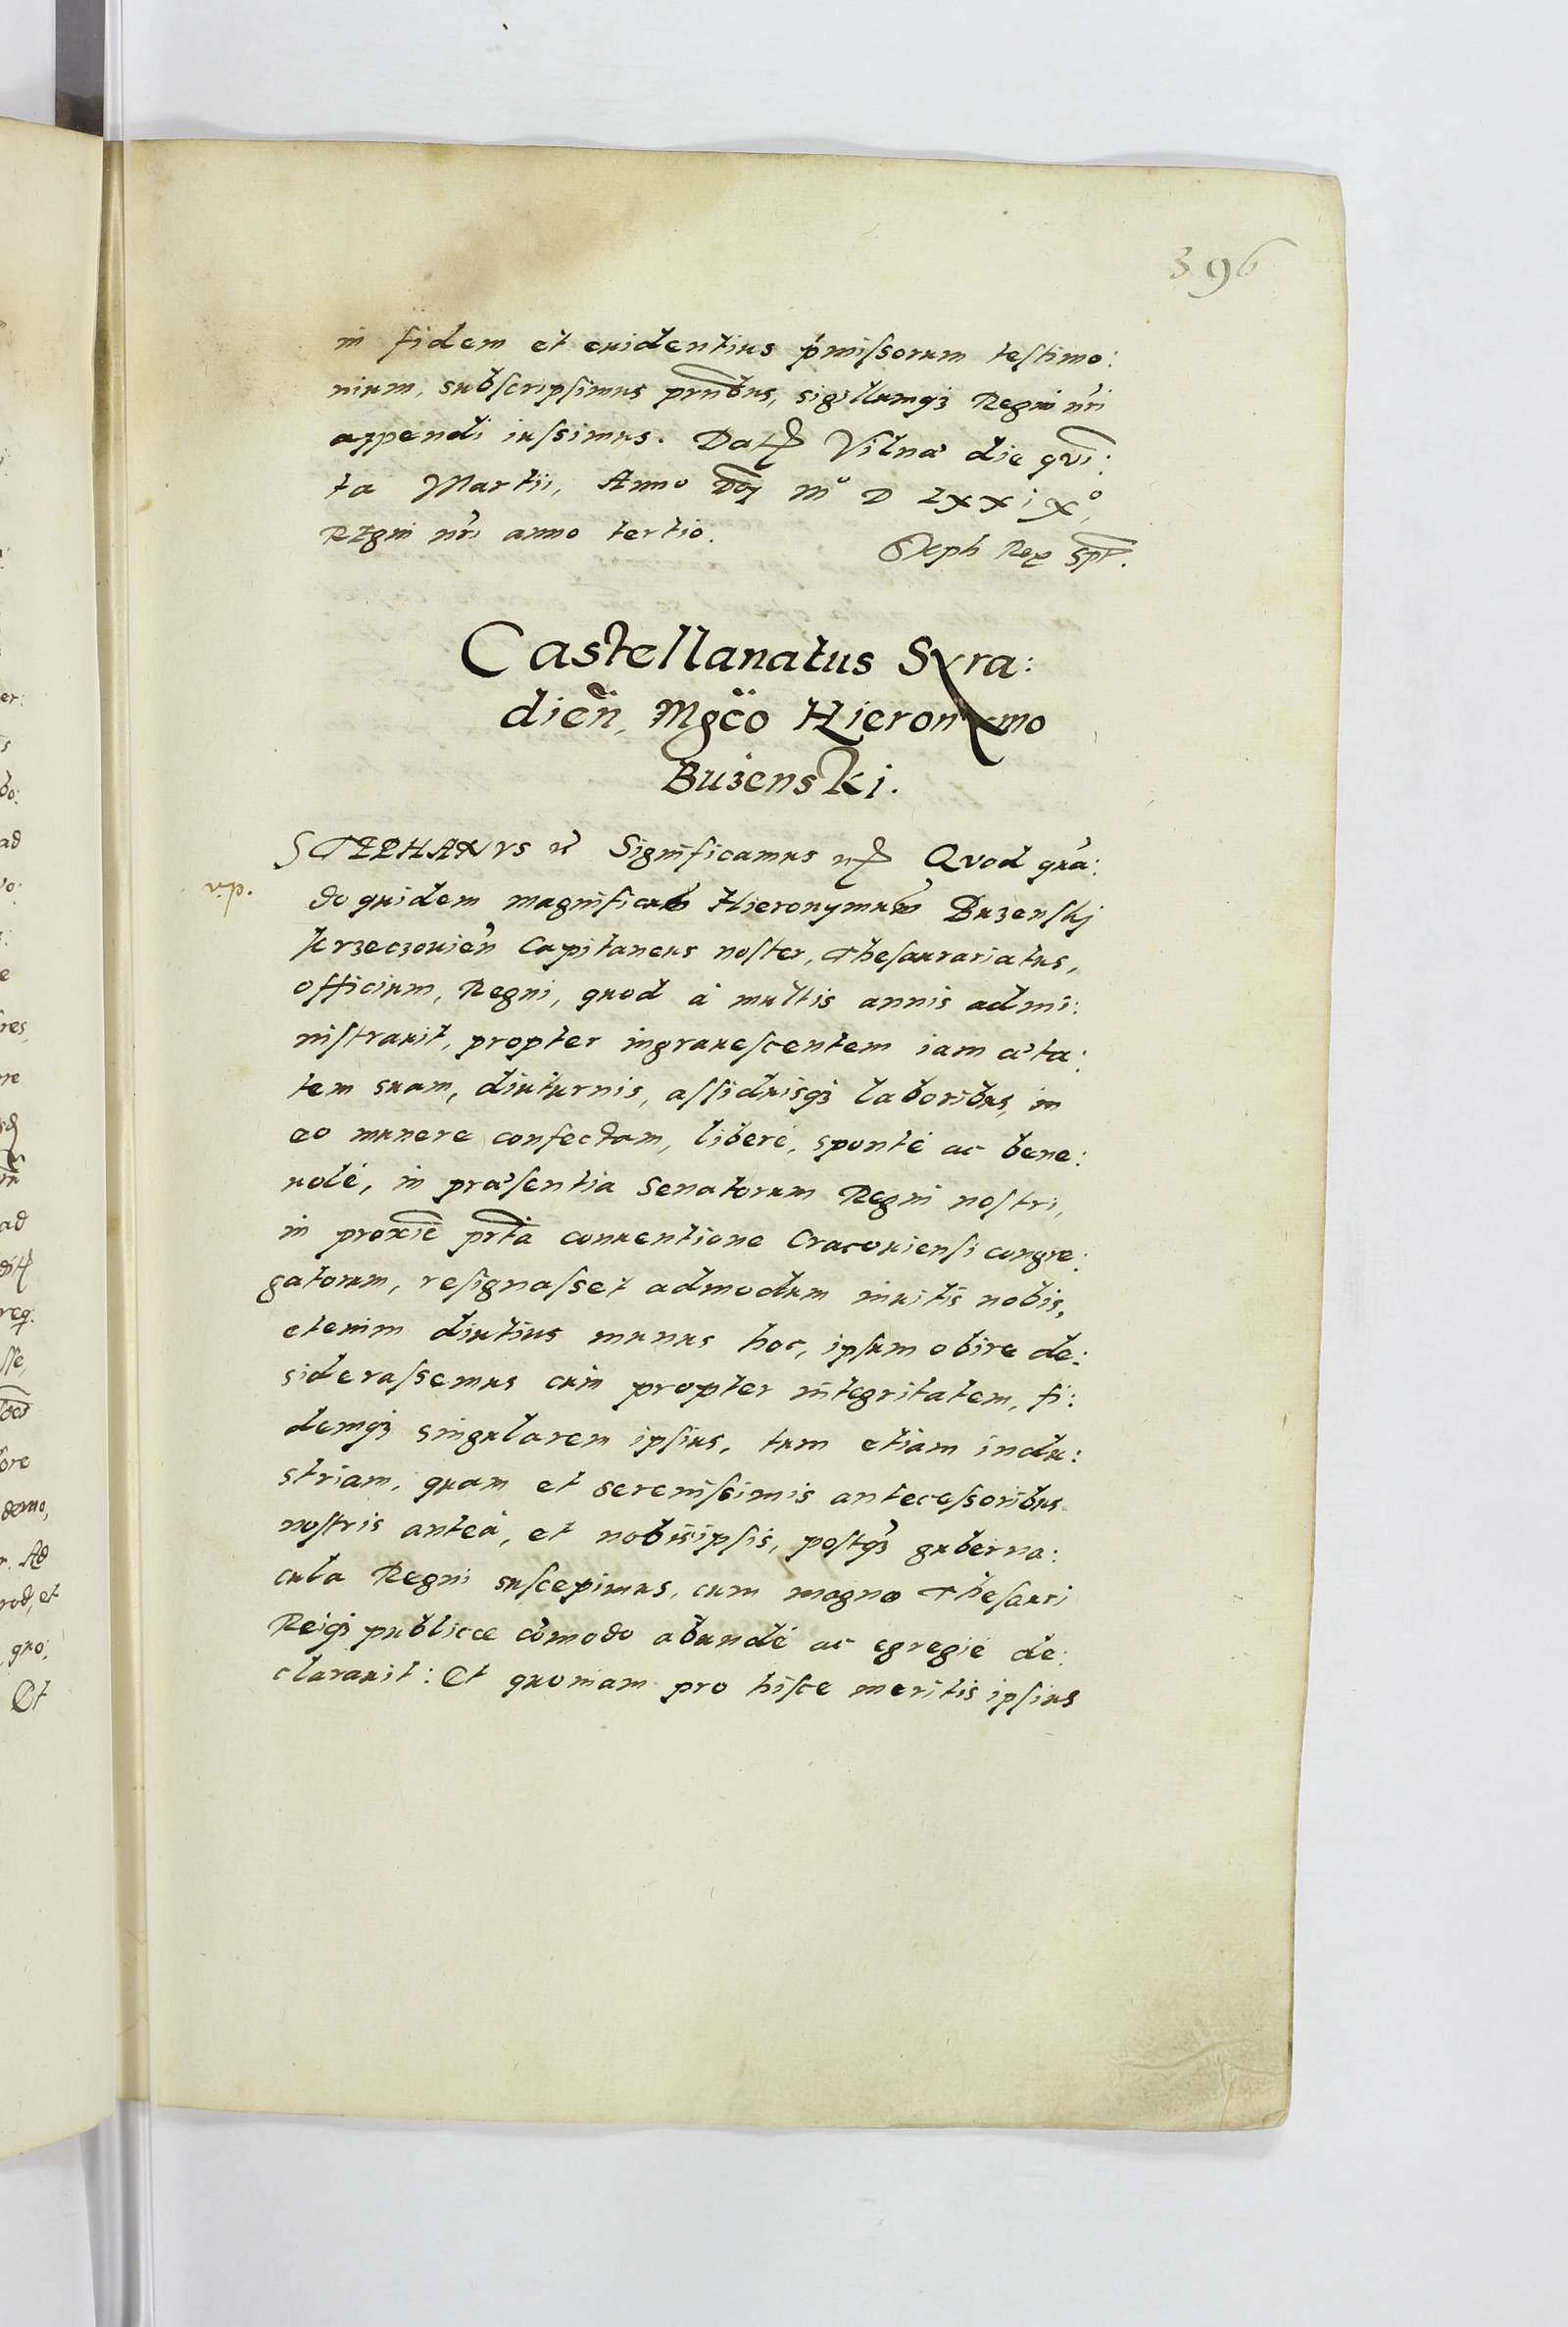 396
in fidem et euidentius pͥmiſsorum teſtimo:
nium, subſcripſimus pr̃ntibus, sigillumqȝ Regni nr̃i
appendi iuſsimus. Datꝭ Vilnæ die qvi͞:
ta Martii, Anno Dn̄j Mº D LXXiXº,
REgni nr̃i anno tertio.
Steph Rex Spt̄.
Castellanatus Syra:
dien̄, Mgc̄o Hieronymo
Buzenski.
STEPHANVS ꝛc̄ Significamus ꝛꝭ Qvod quā:
v.p.
do quidem magnificus Hieronymus Buzenſkj
Krzeczouien̄ Capitaneus noſter, Theſaurariatus,
officium, Regni, quod à multis annis admi:
niſtrauit, propter ingraueſcentem iam æta:
tem suam, diuturnis, aſſiduisqȝ laboribus, in
eo munere confectam, liberè, spontè ac bene:
uolè, in præſentia Senatorum Regni noſtri,
in proxie͞ prt̄a conuentione Cracouienſi congre:
gatorum, reſignaſset admodum inuitis nobis,
etenim diutius munus hoc, ipſum obire de:
sideraſsemus cum propter integritatem, fi:
demqȝ singularem ipſius, tum etiam indu:
striam, quam et sereniſsimis anteceſsoribus
noſtris anteà, et nobisipſis, poſtqȝ guberna:
cula Regni suſcepimus, cum magno Theſauri
Reiqȝ publicæ cōmodo abundè ac egregiè de:
clarauit: Et quoniam pro hiſce meritis ipſius